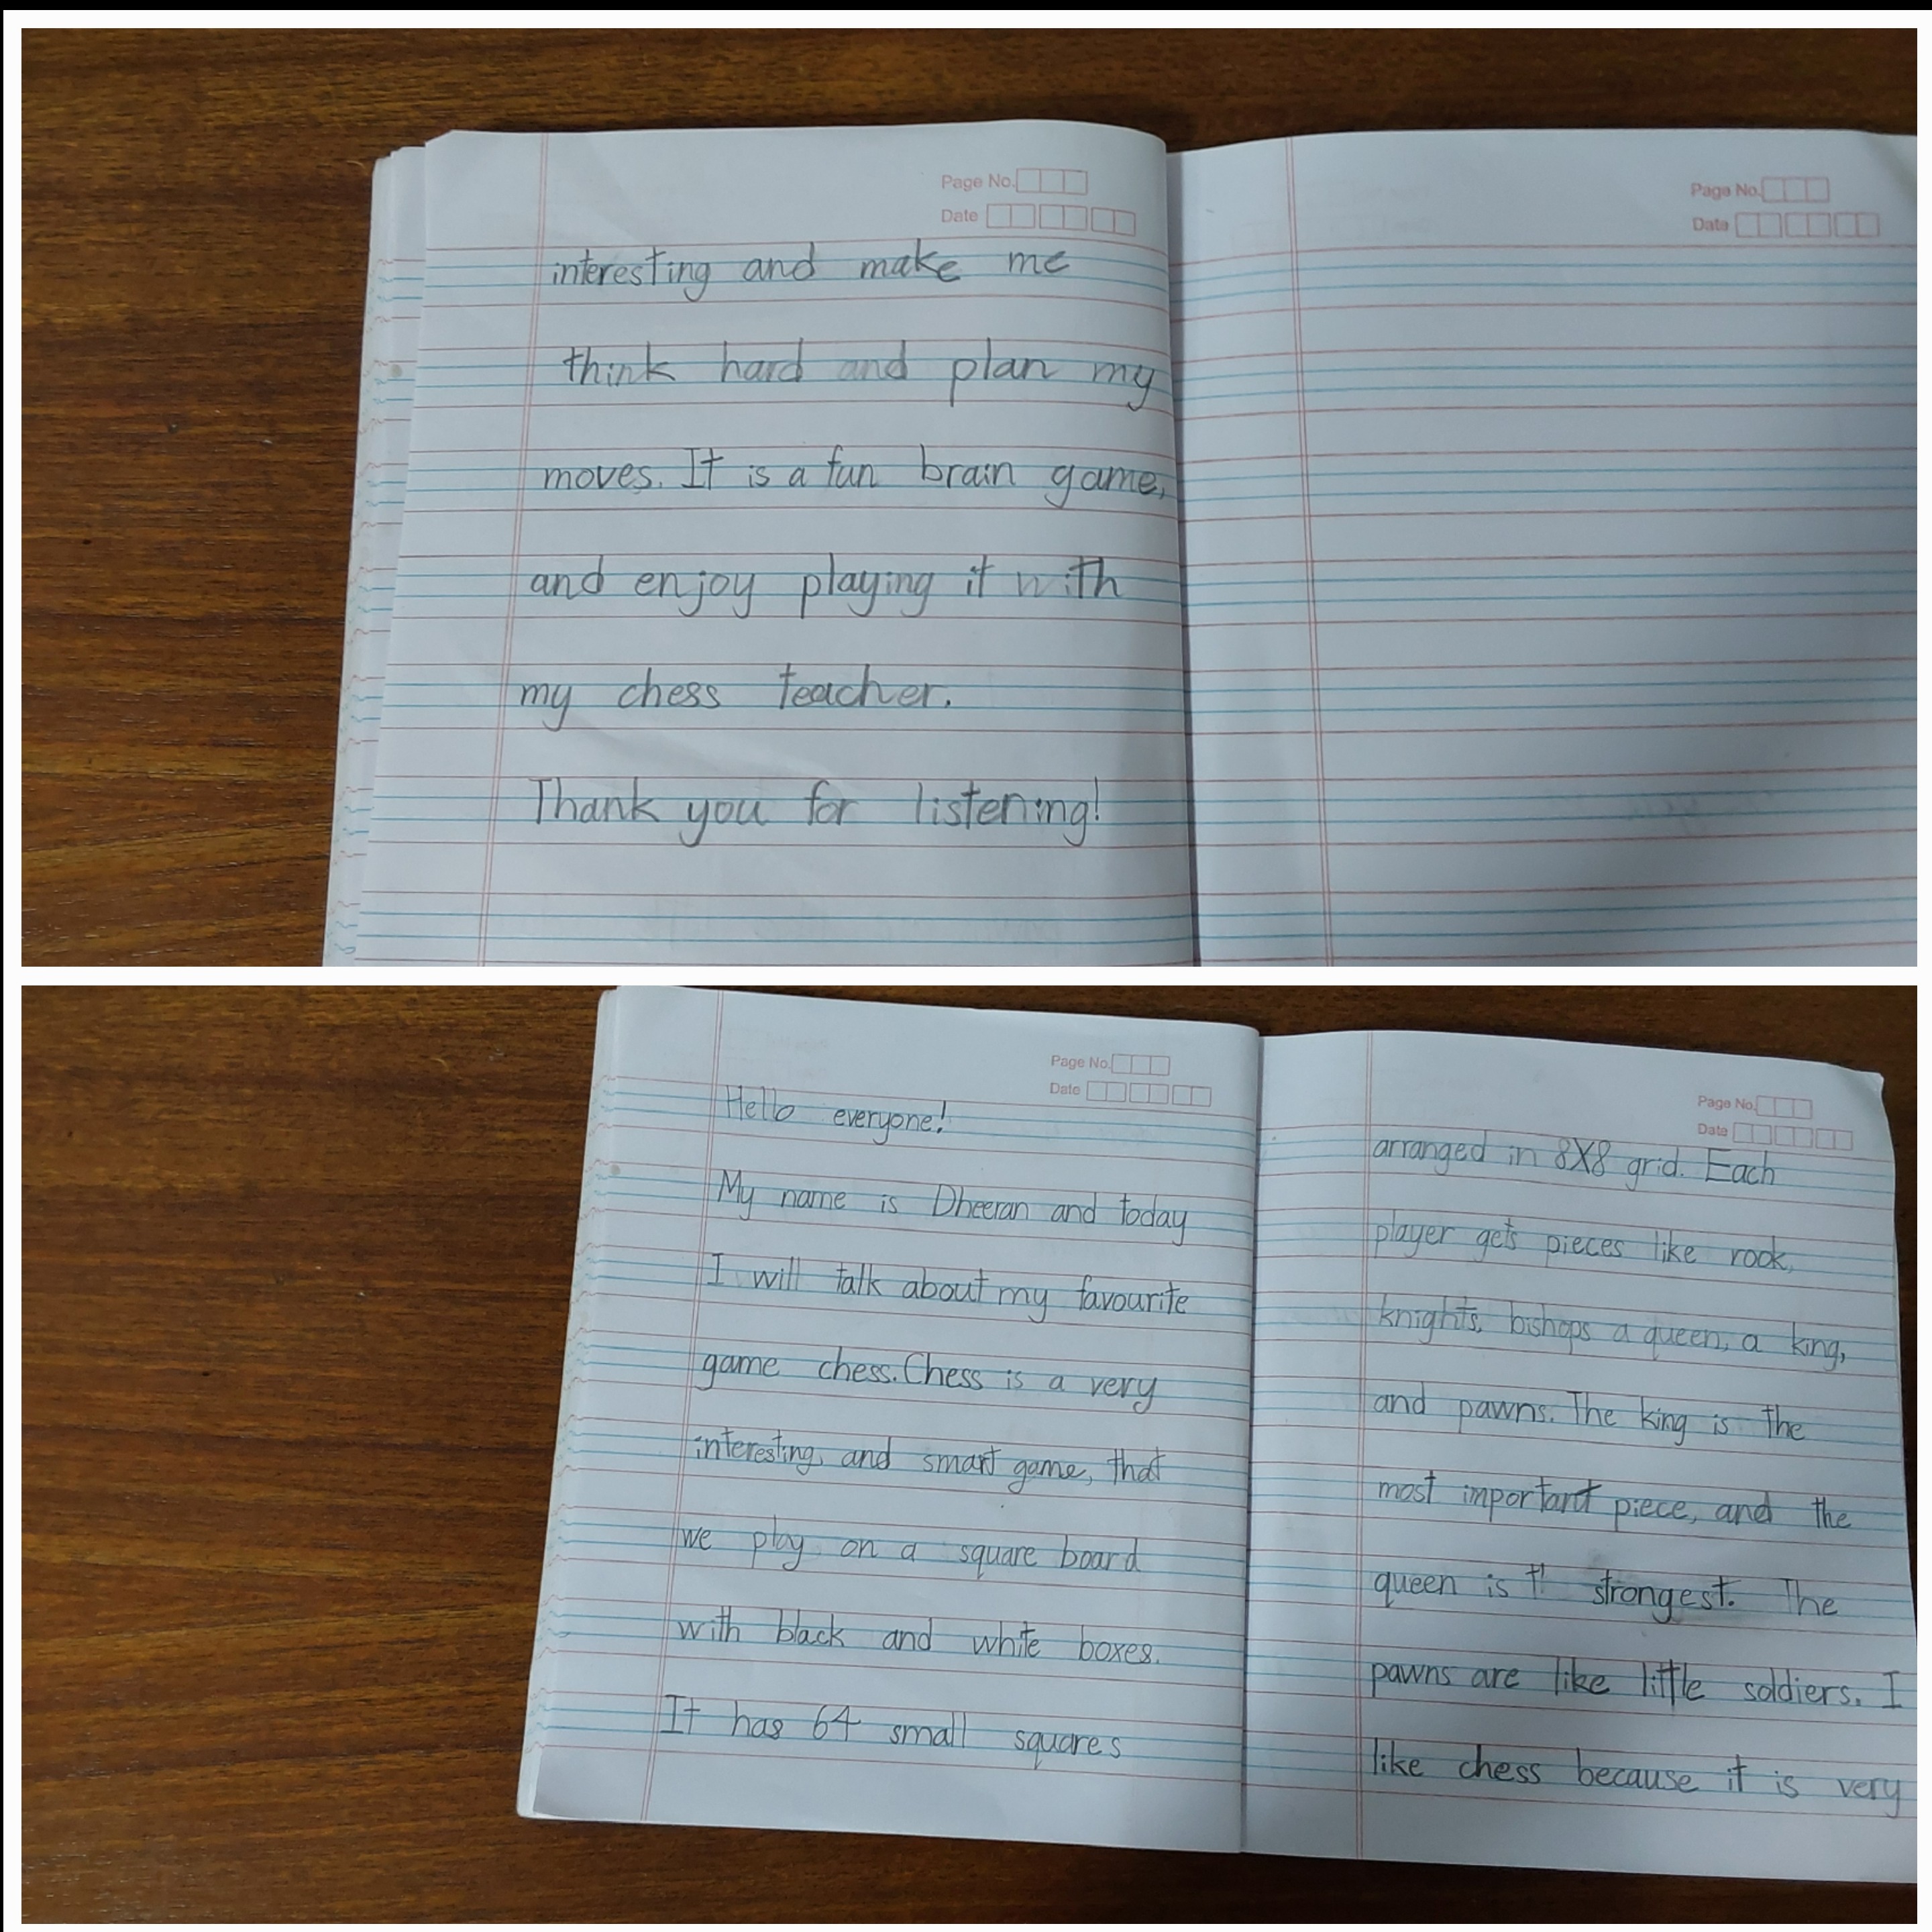 Page No.
Date
interesting and make me
think hard and plan my
moves. It is a fun brain game,
and enjoy playing it with
my chess teacher.
Thank you for listening!
Page No.
Date
Page No.
Date
Hello everyone!
My name is Dheeran and today
I will talk about my favourite
game chess. Chess is a very
interesting, and smart game, that
we play on a square board
with black and white boxes.
It has 64 small squares
Page No.
Date
arranged in 8X8 grid. Each
player gets pieces like rook,
knights, bishops a queen, a king,
and pawns. The king is the
most important piece, and the
queen is strongest. The
pawns are like little soldiers. I
like chess because it is very